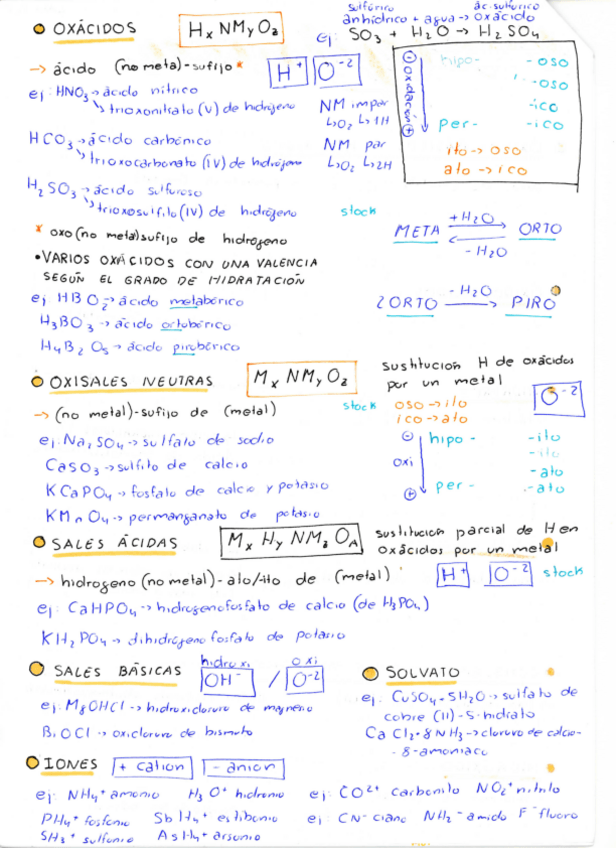 sulfúrico ác. sulfúrico
anhídrico + agua → oxácido
OXÁCIDOS HxNMyOz ej: SO3 + H2O → H2SO4
→ ácido (no metal)-sufijo* H+ O-2
ej: HNO3 → ácido nítrico
trioxonitrato (V) de hidrógeno
HCO3 → ácido carbónico
trioxocarbonato (IV) de hidrógeno
H2SO3 → ácido sulfuroso
trioxosulfito (IV) de hidrógeno
NM impar
↳O2 ↳1H
NM par
↳O2 ↳2H
oxidación
hipo- -oso
-oso
-ico
per- -ico
ito → oso
ato → ico
stock
* oxo (no metal) sufijo de hidrógeno
• VARIOS OXÁCIDOS CON UNA VALENCIA
SEGÚN EL GRADO DE HIDRATACIÓN
ej HBO2 → ácido metabórico
H3BO3 → ácido ortobórico
H4B2O5 → ácido pirobórico
META +H2O ORTO
-H2O
2ORTO -H2O PIRO
OXISALES NEUTRAS MxNMyOz
sustitución H de oxácidos
por un metal
→ (no metal)-sufijo de (metal)
stock oso → ito
ico → ato
O-2
ej: Na2SO4 → sulfato de sodio
CaSO3 → sulfito de calcio
KCaPO4 → fosfato de calcio y potasio
KMnO4 → permanganato de potasio
oxi
hipo- -ito
-ito
-ato
per- -ato
SALES ÁCIDAS MxHyNMzOA
sustitución parcial de H en
oxácidos por un metal
→ hidrogeno (no metal)-ato/-ito de (metal) H+ O-2 stock
ej: CaHPO4 → hidrogenofosfato de calcio (de H3PO4)
KH2PO4 → dihidrógenofosfato de potasio
SALES BÁSICAS hidroxi OH- / oxi O-2
ej: MgOHCl → hidroxicloruro de magnesio
BiOCl → oxicloruro de bismuto
SOLVATO
ej: CuSO4·5H2O → sulfato de
cobre (II)-5-hidrato
CaCl2·8NH3 → cloruro de calcio-
-8-amoniaco
IONES + cation - anion
ej: NH4+ amonio H3O+ hidronio
PH4+ fosfonio SbH4+ estibonio
SH3+ sulfonio AsH4+ arsonio
ej: CO2+ carbonilo NO2+ nitrilo
ej: CN- ciano NH2- amido F- fluoro